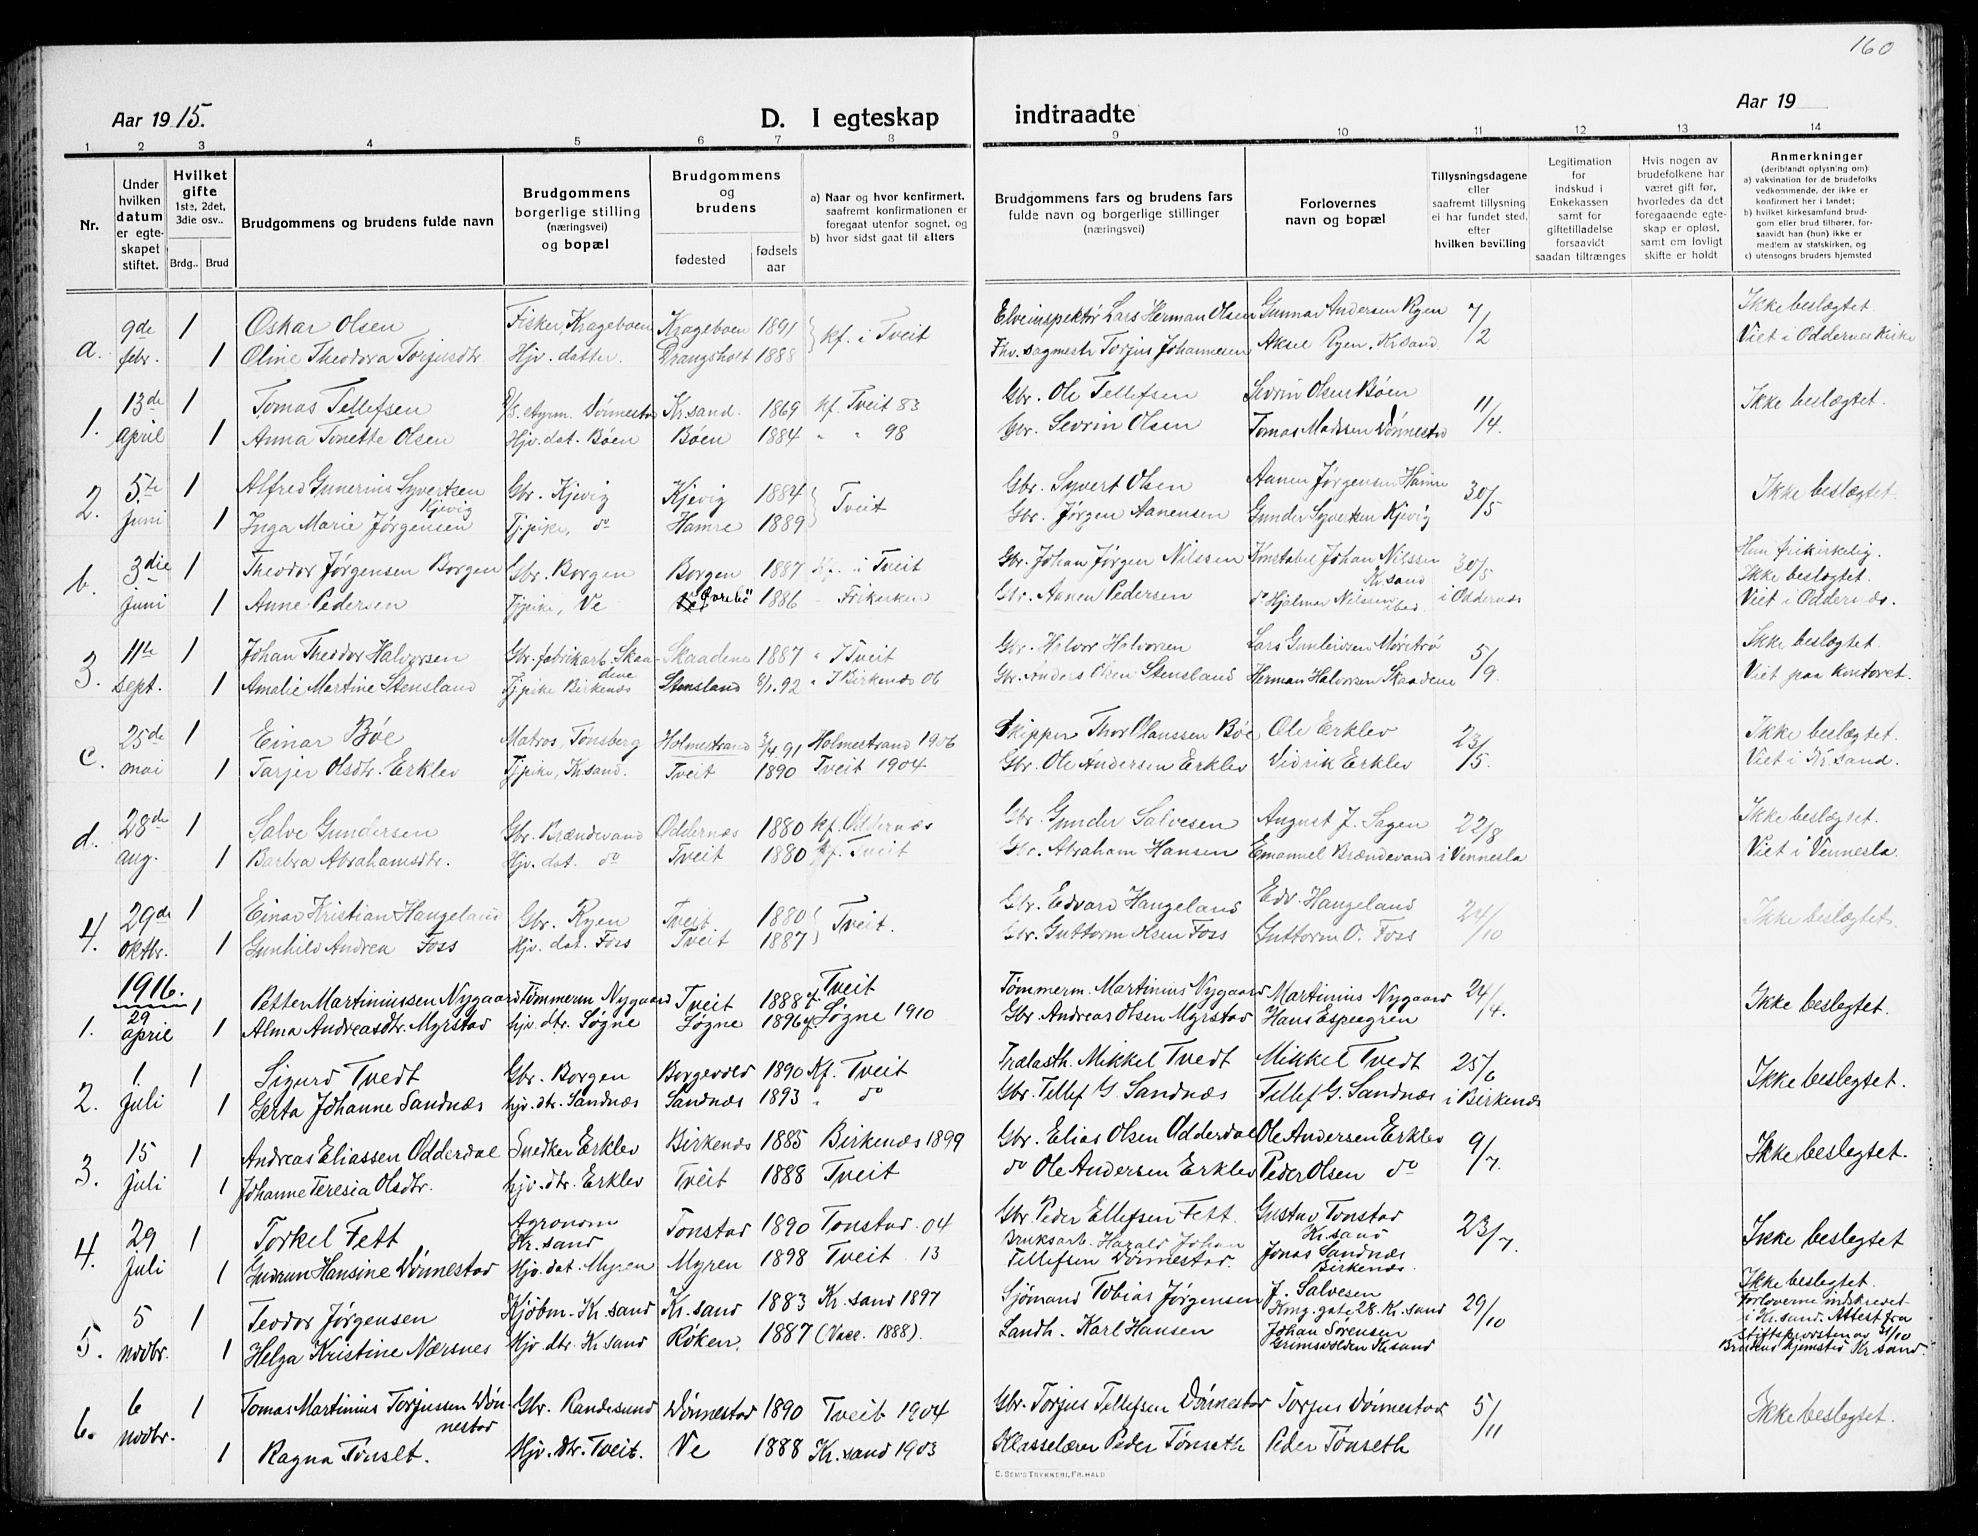 160
Aar 1915.
D. I egteskap indtraadte
Aar 19
1 2 3 4 5 6 7 8 9 10 11 12 13 14
Nr.
Under hvilken datum er egteskapet stiftet.
Hvilket gifte 1ste, 2det, 3die osv..
Brdg.. Brud
Brudgommens og brudens fulde navn
Brudgommens borgerlige stilling (næringsvei) og bopæl
Brudgommens og brudens
fødested
fødsels aar
a) Naar og hvor konfirmert, saafremt konfirmationen er foregaat utenfor sognet, og
b) hvor sidst gaat til alters
Brudgommens fars og brudens fars fulde navn og borgerlige stillinger (næringsvei)
Forlovernes navn og bopæl
Tillysningsdagene eller saafremt tillysning ei har fundet sted, efter hvilken bevilling
Legitimation for indskud i Enkekassen samt for giftetilladelse forsaavidt saadan tiltrænges
Hvis nogen av brudefolkene har været gift før, hvorledes da det foregaaende egteskap er opløst, samt om lovligt skifte er holdt
Anmerkninger (deriblandt oplysning om):
a) vaksination for de brudefolks vedkommende, der ikke er konfirmert her i landet;
b) hvilket kirkesamfund brudgom eller brud tilhører, forsaavidt han (hun) ikke er medlem av statskirken, og
c) utensogns bruders hjemsted
a. 9de febr. 1 Oskar Olsen Fisker, Krageboen Krageboen 1891 kf. i Tveit Elveinspektør Lars Herman Olsen Gunnar Andersen Ryen 7/2 Ikke beslægtet
1 Oline Theodora Torjusdtr. Hjv. datter. Drangsholt 1888 Fhv. sagmestr Torjus Johannesen Aksel Ryen. Kr.sand Viet i Oddernes Kirke
1. 13de april 1 Tomas Tellefsen Dønnestad Kr.sand. 1869 kf. Tveit 83 Gbr. Ole Tellefsen Sevrin Olsen Bøen 11/4. Ikke beslægtet.
1 Anna Tonette Olsen Hjv. dat. Bøen Bøen 1884 " " 98 Gbr. Sevrin Olsen Tomas Madssen Dønnestad
2. 5te juni 1 Alfred Gunerius Syvertsen Kjevig Gbr. Kjevig Kjevig 1884 Tveit Gbr. Syvert Olsen Aanen Jørgensen Hamre 30/5 Ikke beslægtet.
1 Inga Marie Jørgensen Tjpike, do Hamre 1889 Gbr. Jørgen Aanensen Gunder Syvertsen Kjevig
b. 3die juni 1 Theodor Jørgensen Borgen Gbr. Borgen Borgen 1887 Kf. i Tveit Gbr. Johan Jørgen Nilssen Konstabel Johan Nilssen Kr.sand 30/5 i Oddernæs Hun frikirkelig. Ikke beslægtet.
1 Anne Pedersen Tjpike, Ve Øvrebø 1886 " Frikirken Gbr. Aanen Pedersen do Hjalmar Nilssen ibid Viet i Oddernæs.
3. 11te sept. 1 Johan Theodor Halvorsen Gbr. fabrikarb. Skaadene Skaadene 1887 " I Tveit Gbr. Halvor Halvorsen Lars Gunleivsen Mørstrø 5/9. Ikke beslægtet.
1 Amalie Martine Stensland Tjpike Birkenæs Stensland 8/1.92 " I Birkenæs 06 Gbr. Anders Olsen Stensland Herman Halvorsen Skaadene Viet paa kontoret.
c. 25de mai 1 Einar Bøe Matros, Tønsberg Holmestrand 3/4 91 Holmestrand 1906 Skipper Thor Olaussen Bøe Ole Erklev 23/5. Ikke beslægtet.
1 Tarjer Olsdtr. Erklev Tjpike, Kr.sand. Tveit 1890 Tveit 1904 Gbr. Ole Andersen Erklev Didrik Erklev Viet i Kr.sand.
d. 28de aug. 1 Salve Gundersen Gbr. Brændevand Oddernæs 1880 kf. Oddernæs Gbr. Gunder Salvesen August J. Sagen 22/8 i Vennesla Ikke beslægtet.
1 Barbra Abrahamsdtr. Hjv. dat. do Tveit 1880 kf. Tveit Gbr. Abraham Hansen Emanuel Brændevand Viet i Vennesla.
4. 29de oktbr. 1 Einar Kristian Hangeland Gbr. Ryen Tveit 1880 Tveit. Gbr. Edvard Hangeland Edv. Hangeland 24/10 Ikke beslægtet.
1 Gunhild Andrea Foss Hjv. dat. Foss Tveit 1887 Gbr. Guttorm Olsen Foss Guttorm O. Foss
1916.
1. 29 april 1 Petter Martiniussen Nygaard Tømmerm. Nygaard Tveit 1888 kf. Tveit Tømmerm. Martinius Nygaard Martinius Nygaard 24/4. Ikke beslegtet.
1 Alma Andreasdtr. Myrstad hjv. dtr. Søgne Søgne 1896 kf. Søgne 1910 Gbr. Andreas Olsen Myrstad Hans Espegren
2. 1. juli 1 Sigurd Tvedt Gbr. Borgen Borgevold 1890 Kf. Tveit Trælasth. Mikkel Tvedt Mikkel Tvedt 25/6 i Birkenæs Ikke beslegtet.
1 Gerta Johanne Sandnæs hjv. dtr. Sandnæs Sandnæs 1893 " do Gbr. Tellef G. Sandnæs Tellef G. Sandnæs
3. 15 juli 1 Andreas Eliassen Odderdal Snedker Erklev Birkenæs 1885 Birkenæs 1899 Gbr. Elias Olsen Odderdal Ole Andersen Erklev 9/7. Ikke beslegtet.
1 Johanne Teresia Olsdtr. hjv. dtr. Erklev Tveit 1888 Tveit do Ole Andersen Erklev Peder Olsen do
4. 29 juli 1 Torkel Fett Agronom Kr.sand Tonstad 1890 Tonstad. 04 Gbr. Peder Ellefsen Fett. Gustav Tonstad Kr.sand 23/7. Ikke beslegtet
1 Gudrun Hansine Dønnestad Hjv. dat. Myren Myren 1898 Tveit. 13 Bruksarb. Harald Johan Tellefsen Dønnestad. Jonas Sandnæs Birkenæs.
5. 5 novbr. 1 Teodor Jørgensen Kjøbm. Kr.sand Kr.sand 1883 Kr.sand 1897 Sjømand Tobias Jørgensen J. Salvesen Kong.gate 28. Kr.sand 29/10 Ikke beslegtet. Forloverne indskrevet i Kr.sand. Attest fra stiftsprovsten av 31/10
1 Helga Kristine Næsnes Hjv. dtr. Kr.sand Røken. 1887 (Vacc. 1888). Landh. Karl Hansen Johan Sørensen Grimsvolden Kr.sand Brudens hjemsted Kr.sand.
6. 6 novbr. 1 Tomas Martinius Torjussen Dønnestad Gbr. Randesund Dønnestad 1890 Tveit 1904 Gbr. Torjus Tellefsen Dønnestad Torjus Dønnestad 5/11 Ikke beslegtet.
1 Ragna Tønset. Hjv. dtr. Tveit. Ve 1888 Kr.sand 1903 Klasselærer Peder Tønseth Peder Tønseth
C. SEM'S TRYKKERI, FR.HALD